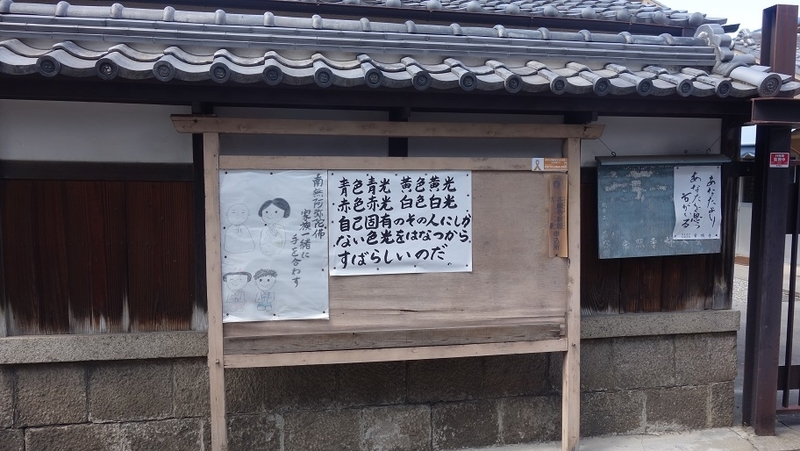 南無阿弥陀佛
家族一緒に
手を合わす
青色青光　黄色黄光
赤色赤光　白色白光
自己固有のその人にしか
ない色光をはなつから
すばらしいのだ。
あなたより
あなたを思う